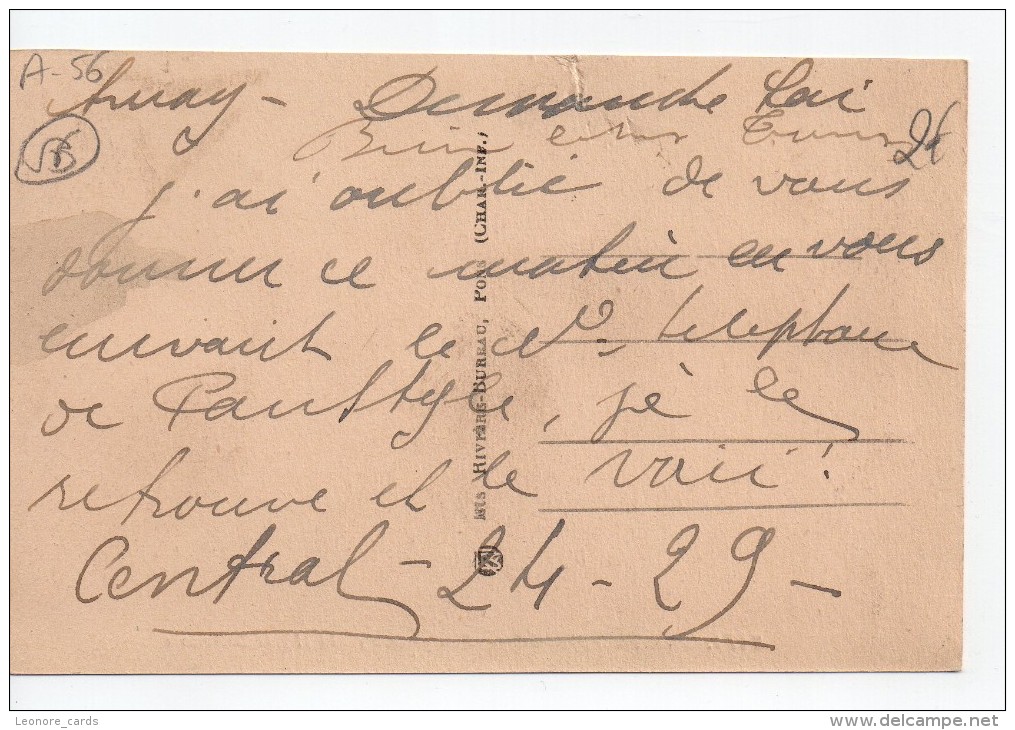 A-56
Auray - Demanche Soir
Bien chers Tous 26
j'ai oublié de vous
donner ce matin en vous
ecrivant le N° telephone
de Paul, je le
retrouve et le voici !
Central - 24 - 29 -
Ets RIVIÈRE-BUREAU, PONS (CHAR.-INF.)
Leonore_cards
delcampe.net